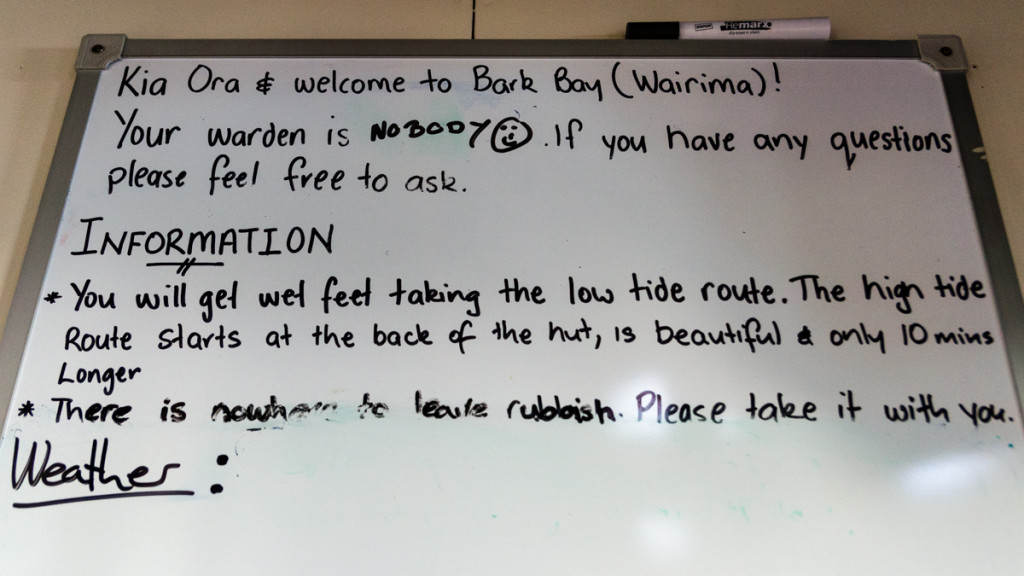 Hemarx
Kia Ora & welcome to Bark Bay (Wairima)!
Your warden is NOBODY. If you have any questions
please feel free to ask.
INFORMATION
* You will get wet feet taking the low tide route. The high tide
Route starts at the back of the hut, is beautiful & only 10 mins
Longer
* There is nowhere to leave rubbish. Please take it with you.
Weather :